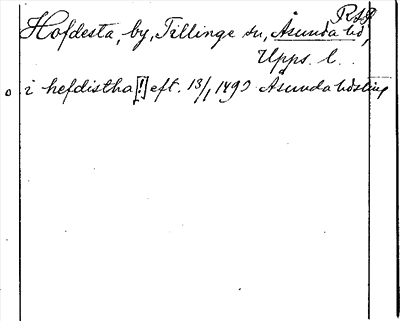 RAP
Hofdesta, by, Tillinge sn, Åsunda hd,
Upps. l.
i hefdistha [!] eft. 13/1 1490 Åsunda hdsting